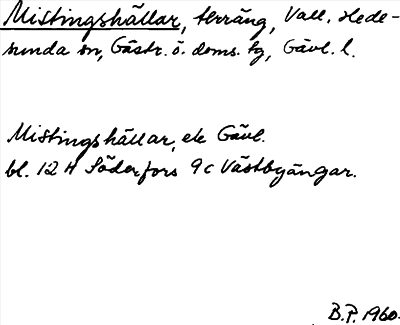 Mistingshällar, terräng, Vall. Hede-
sunda sn, Gästr. ö. doms. hg, Gävl. l.
Mistingshällar, ek Gävl.
bl. 12 H Söderfors 9c Västbyängar.
B.P. 1960.